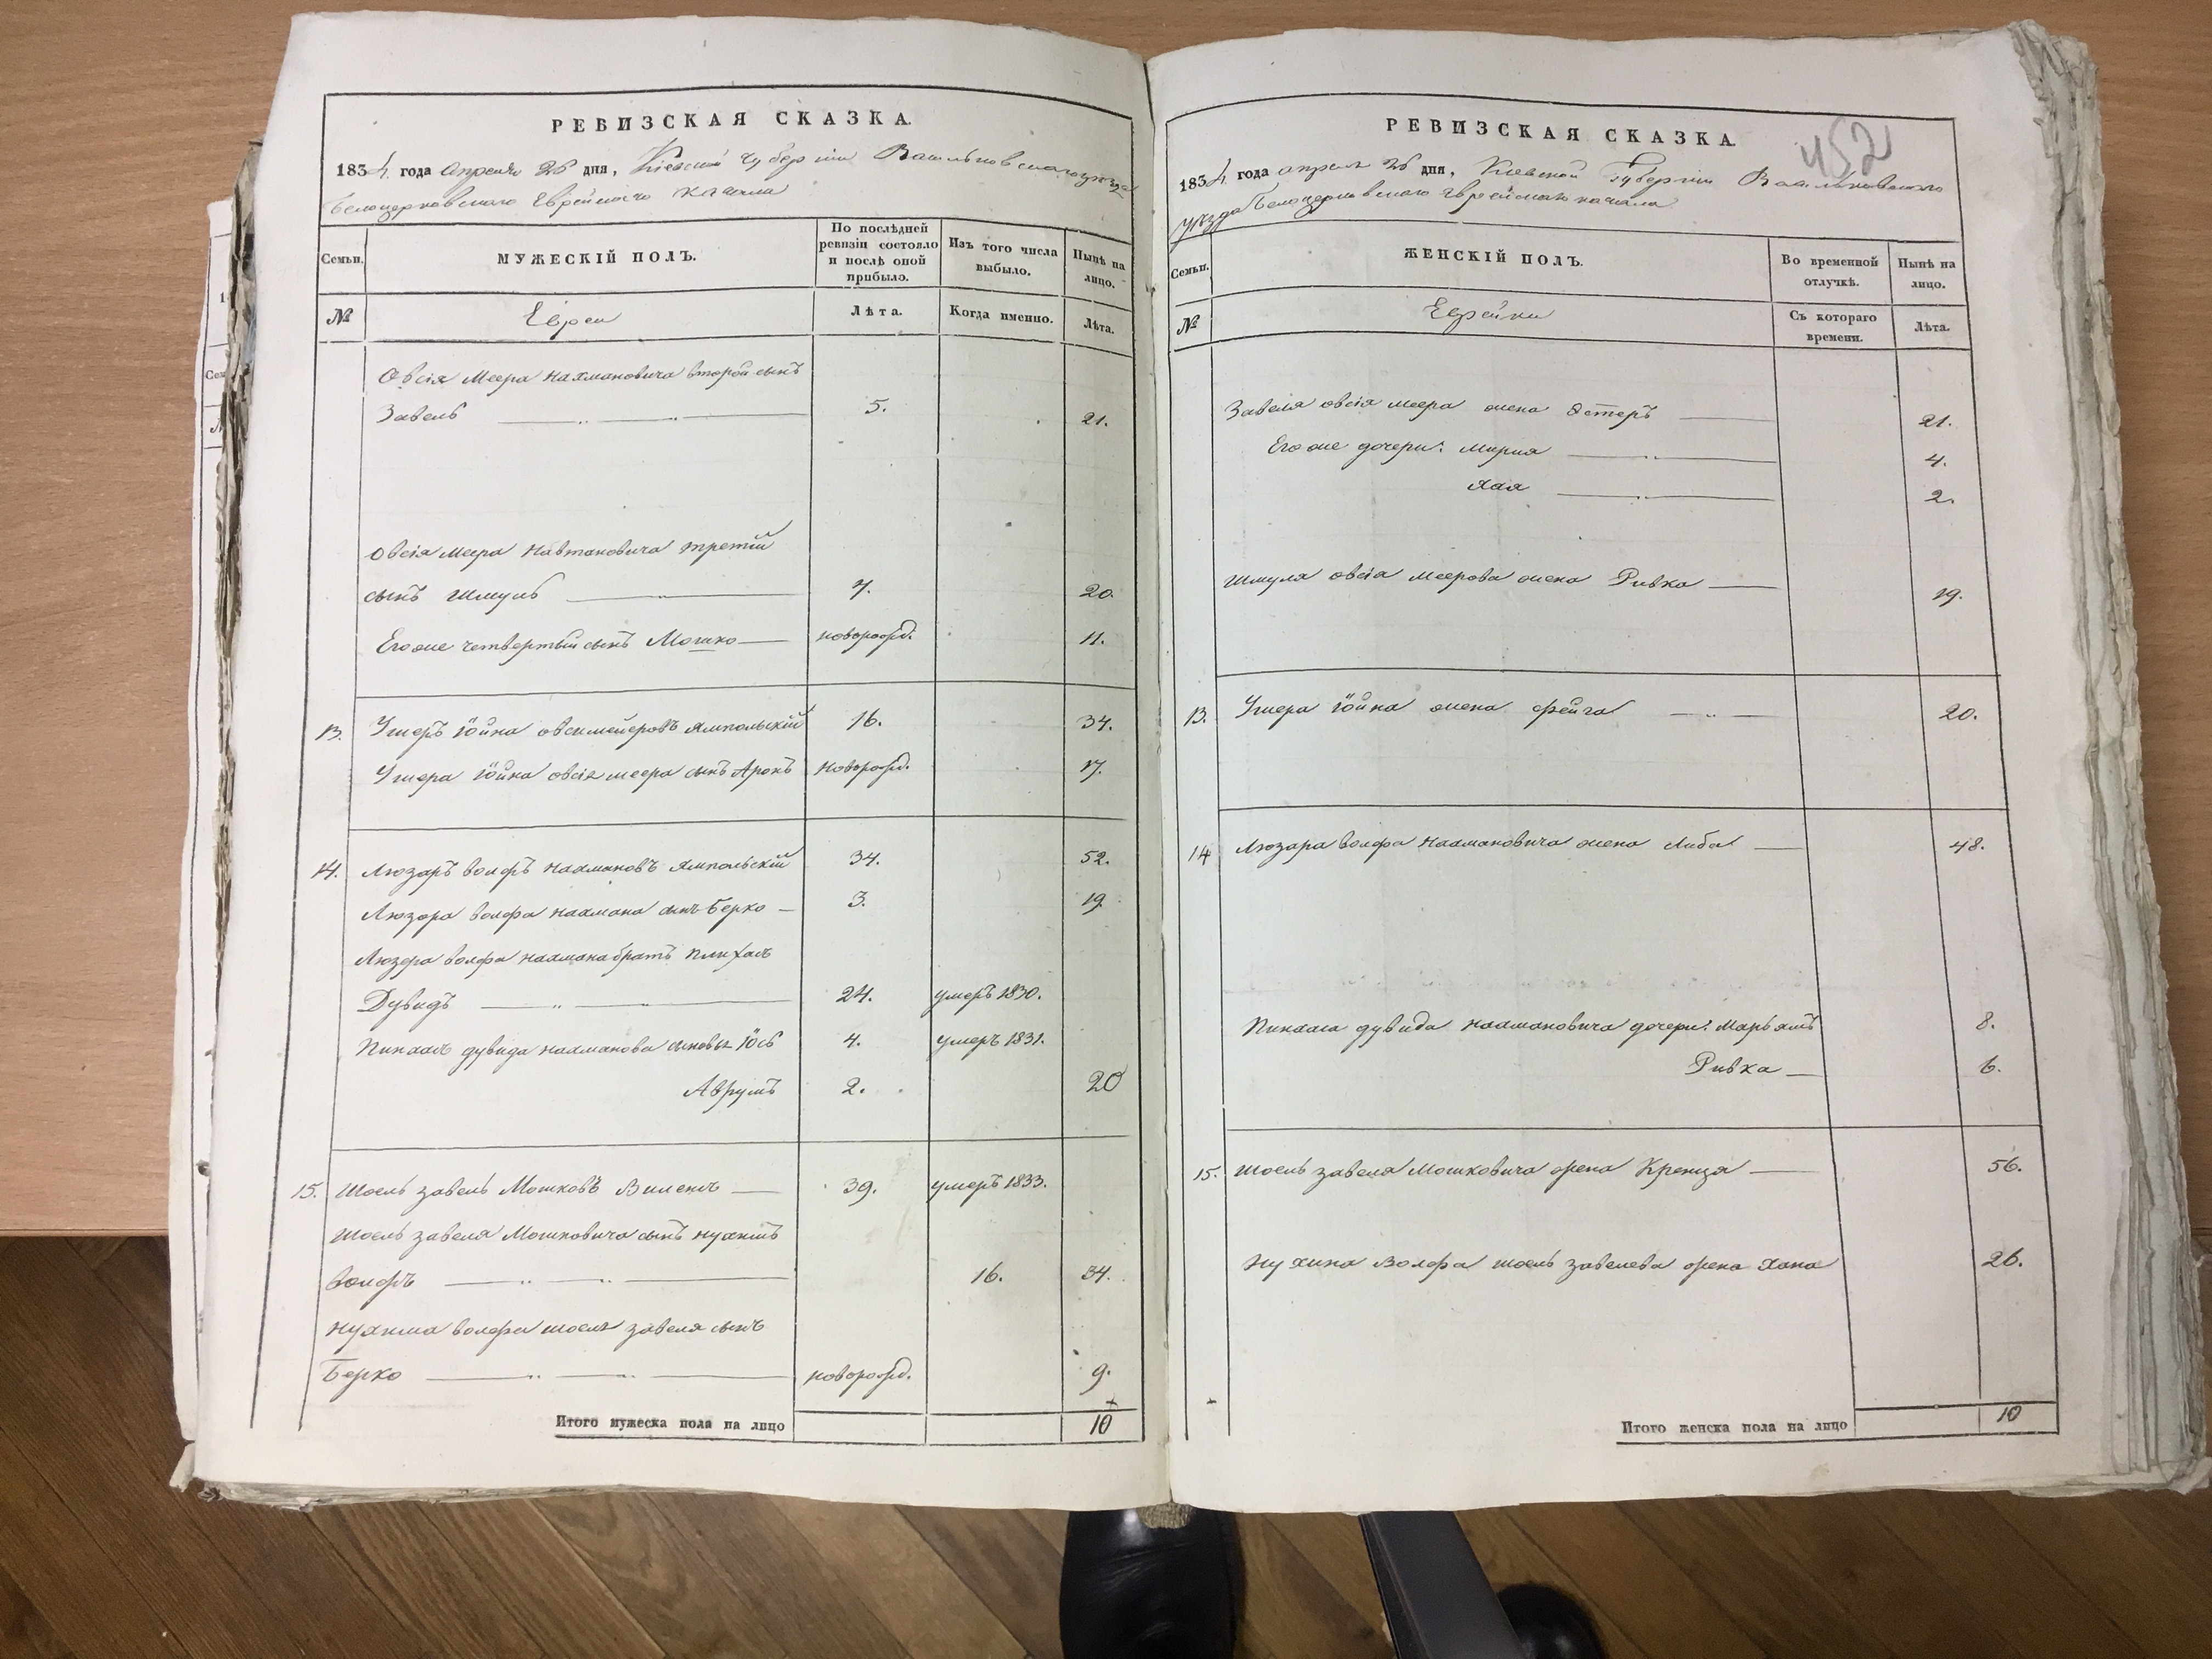 РЕВИЗСКАЯ СКАЗКА.
1834 года апреля 26 дня, Кіевской губерніи Васильковскаго уезда
Белоцерковскаго Еврейскаго кагала
Семьи.
МУЖЕСКІЙ ПОЛЪ.
По послѣдней ревизіи состояло и послѣ оной прибыло.
Изъ того числа выбыло.
Нынѣ на лицо.
№
Евреи
Лѣта.
Когда именно.
Лѣта.
Овсія Меера Нахмановича второй сынъ
Завель 5. 21.
Овсія Меера третій
сынъ Шмуль 7. 20.
Его же четвертый сынъ Мошко новорожд. 11.
13. Ушеръ Іойна Ямпольскій 16. 34.
Ушера Іойна овсія меера сынъ Аронъ новорожд. 17.
14. Люзаръ Волфъ Нахмановъ Ямпольскій 34. 52.
Люзера Волфа Нахмана сынъ Берко 3. 19.
Люзера Волфа Нахмана братъ Пинхасъ
Дувидъ 24. умеръ 1830.
дувида нахманова сыновья Іось 4. умеръ 1831.
Аврумъ 2. 20
15. Шоель завель Мошковъ 39. умеръ 1833.
Шоель завеля Мошковича сынъ Нухимъ
Волфъ 16. 34.
Нухима волфа шоеля завеля сынъ
Берко новорожд. 9.
Итого мужеска пола на лицо 10
РЕВИЗСКАЯ СКАЗКА.
452
1834 года апреля 26 дня, Кіевской Губерніи Васильковскаго
уезда Белоцерковскаго Еврейскаго кагала
Семьи.
ЖЕНСКІЙ ПОЛЪ.
Во временной отлучкѣ.
Нынѣ на лицо.
№
Еврейки
Съ котораго времени.
Лѣта.
Завеля овсія меера жена Эстеръ 21.
Его же дочери: Мирия 4.
Хая 2.
Шмуля овсія меерова жена Ривка 19.
13. Ушера Іойна жена Фейга 20.
14 Люзара волфа Нахмановича жена Либа 48.
дувида Нахмановича дочери: Марьямъ 8.
Ривка 6.
15. Шоель завеля Мошковича жена Крейнця 56.
Нухима Волфа шоель завелева жена Хана 26.
Итого женска пола на лицо 10